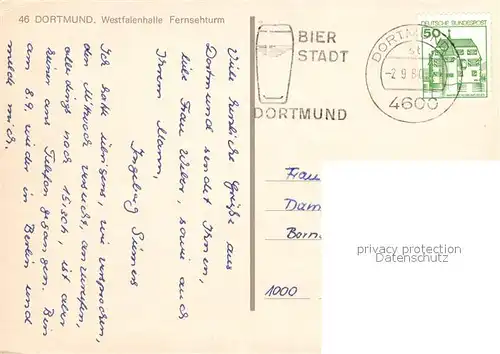 46 DORTMUND. Westfalenhalle Fernsehturm
Viele herzliche Grüße aus
Dortmund und sendet Ihnen,
liebe Frau Weber, sowie auch
Ihrem Mann,
Ingeborg
Ich hatte übrigens, wie versprochen,
den Mittwoch versucht, anzurufen,
allerdings nach 15,30h, ist aber
keiner ans Telefon gegangen. Bin
am 8.9. wieder in Berlin und
melde mich.
BIER
STADT
DORTMUND
DORTMUND
st
-2.9.80
4600
DEUTSCHE BUNDESPOST
50
Frau
Dam
Born
1000
privacy protection
Datenschutz